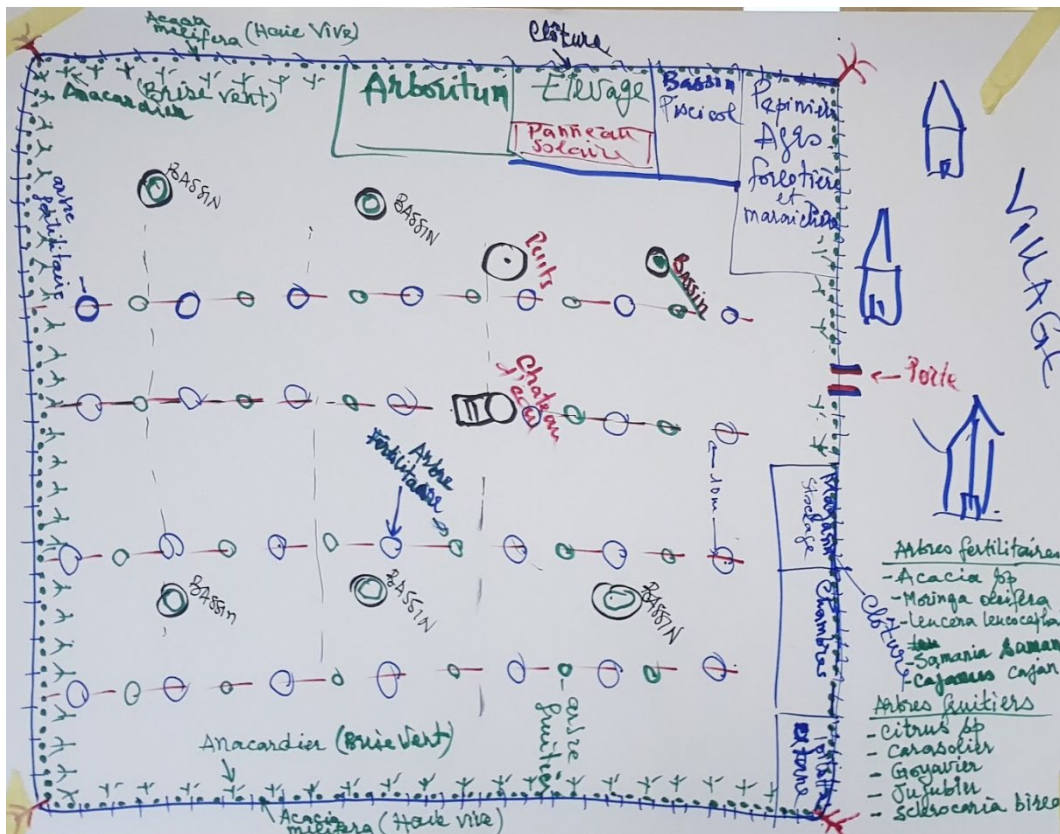 Acacia
melifera (Haie Vive)
Clôture
Anacardier (Brise Vent)
Arboritum
Elevage
Panneau
solaire
Bassin
Piscicol
Pépinière
Agro
forestière
et
maraichère
VILLAGE
arbre fertilitaire
BASSIN
BASSIN
Puits
BASSIN
Porte
Château
d'eau
Arbre
fertilitaire
10m
Magasin
Stockage
Clôture
Chambres
BASSIN
BASSIN
BASSIN
arbre
fruitier
externe
Anacardier (Brise Vent)
Acacia
melifera (Haie Vive)
Arbres fertilitaires
- Acacia sp
- Moringa oleifera
- Leucena leucocephala
- Samania Saman
- Cajanus cajan
Arbres fruitiers
- Citrus sp
- Carosolier
- Goyavier
- Jujubier
- Sclerocaria birea